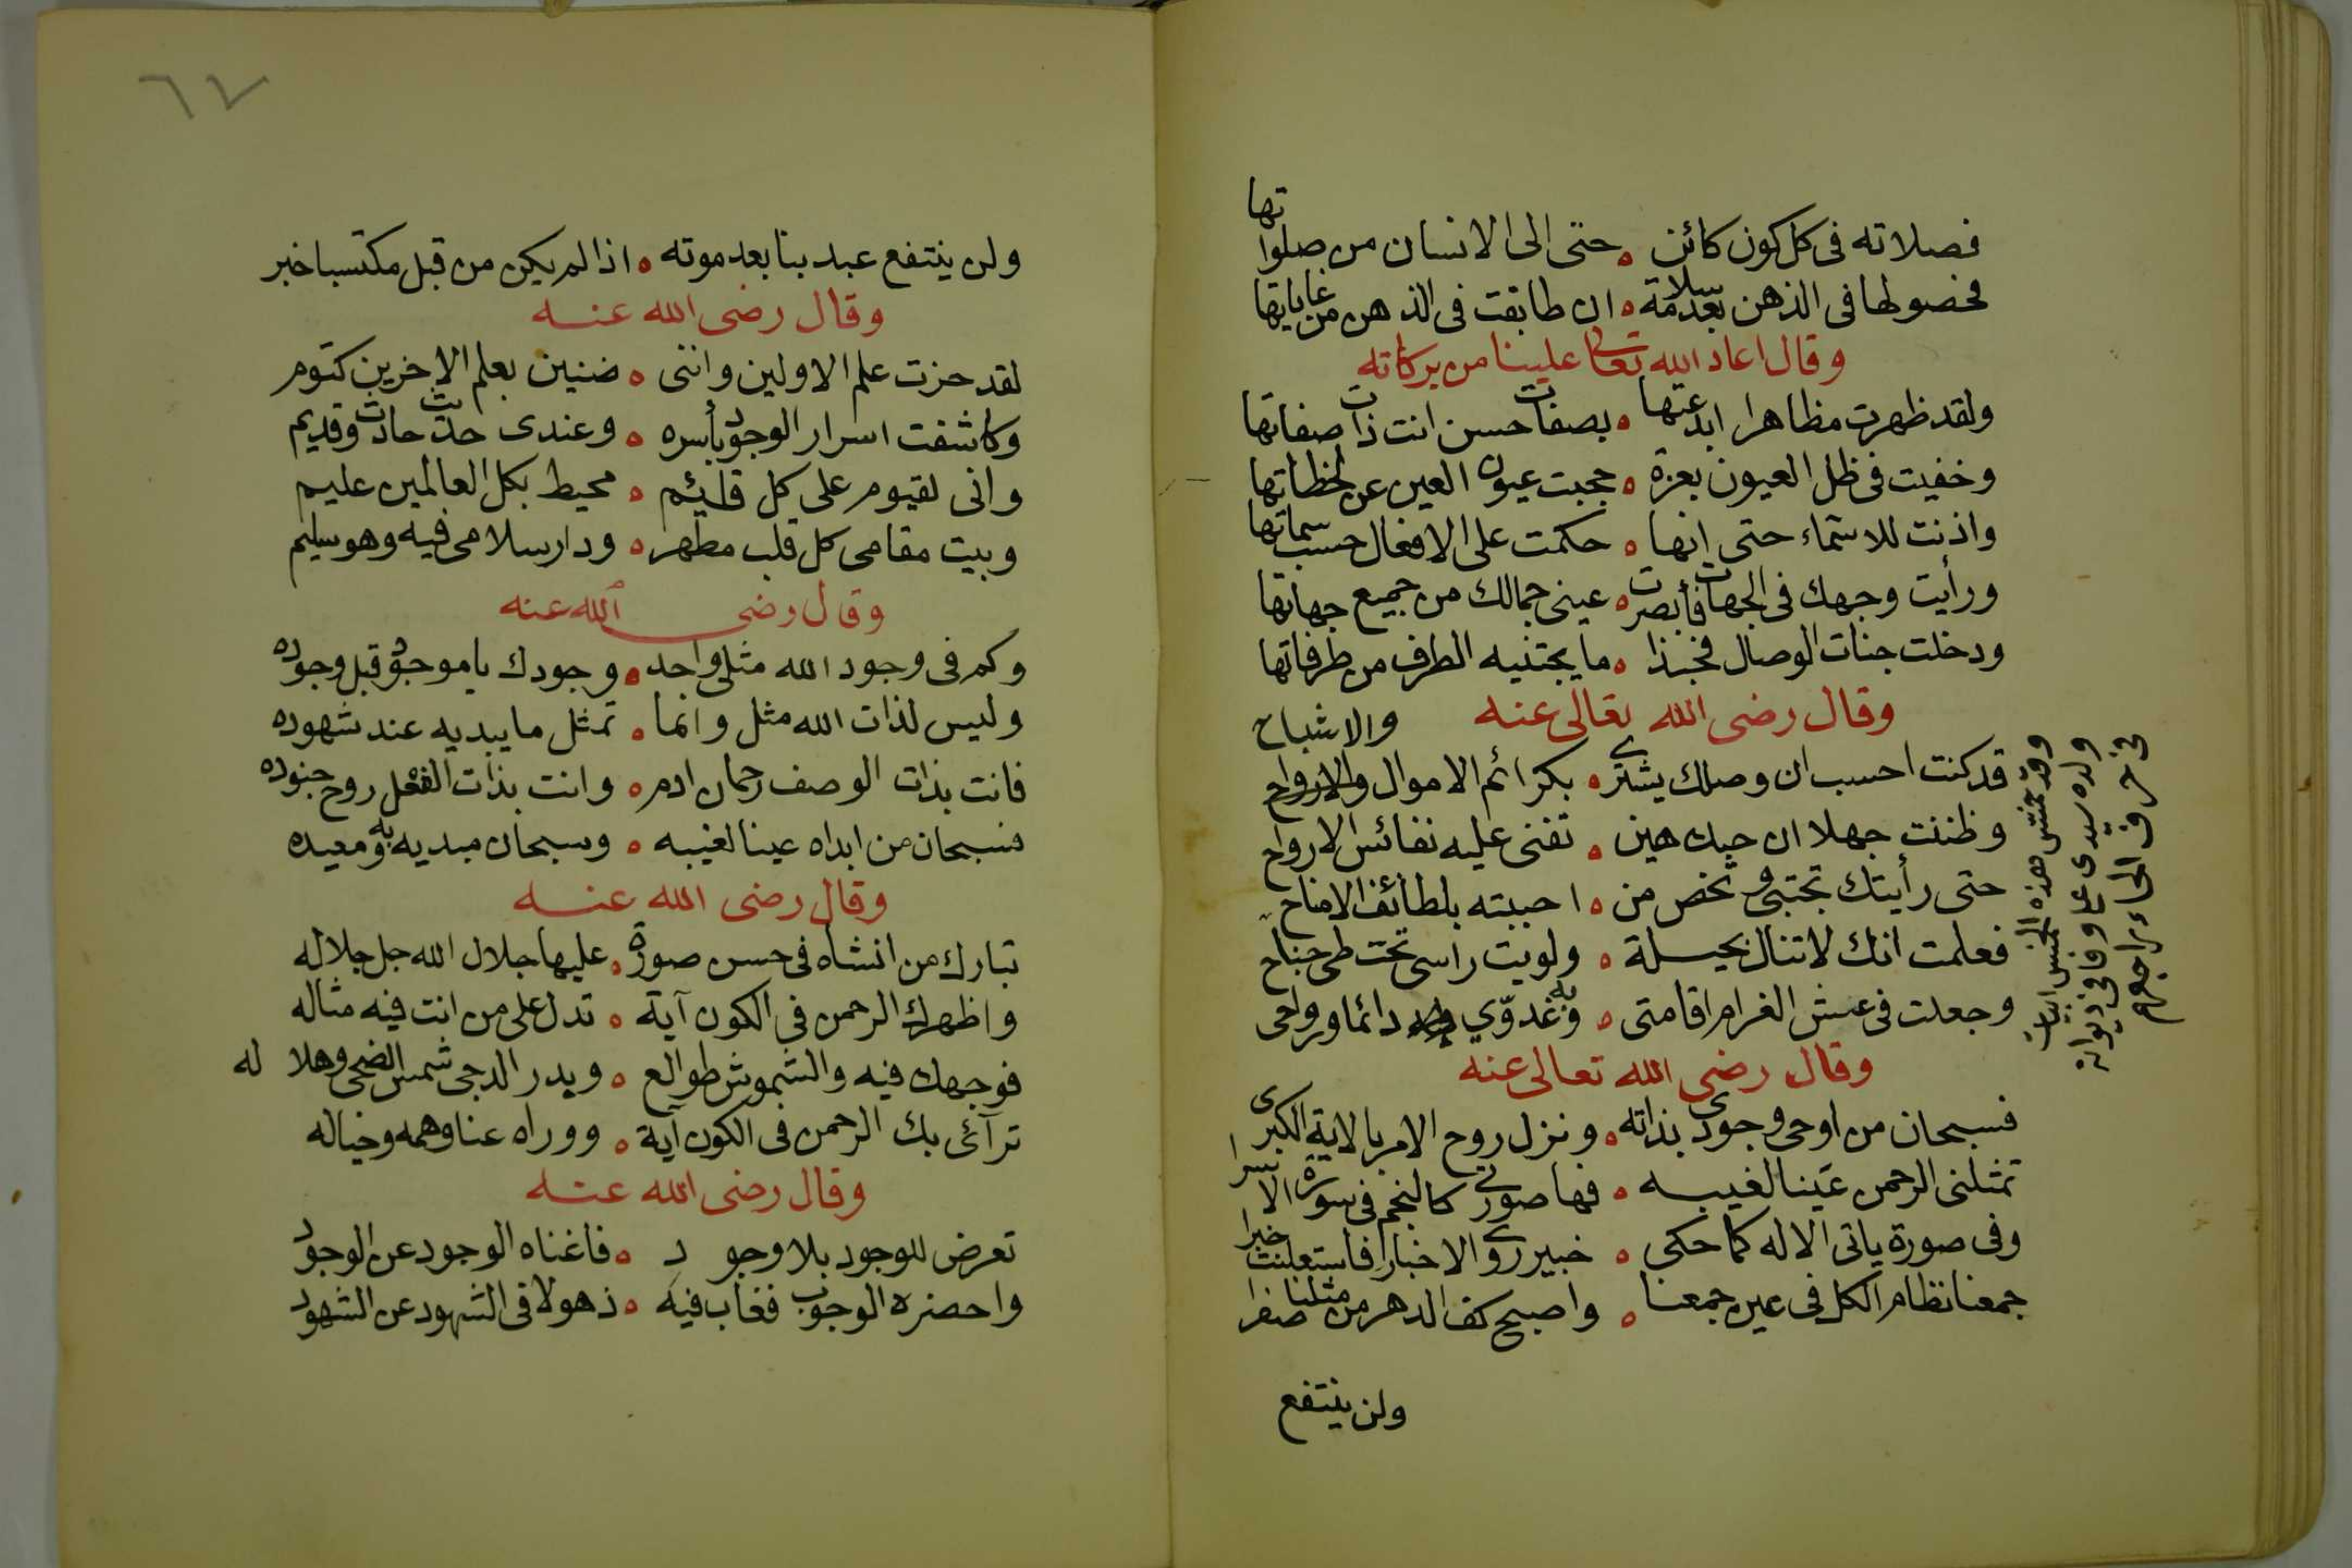 فصلاته فى كل كون كائن ۰ حتى الى الانسان من صلواتها
فحصولها فى الذهن بعد سلامة ۰ ان طابقت فى الذهن من غاياتها
وقال اعاد الله تعالى علينا من بركاته
ولقد ظهرت مظاهرا ابدعتها ۰ بصفات حسن انت ذات صفاتها
وخفيت فى ظل العيون بعزة ۰ حجبت عيون العين عن لحظاتها
واذنت للاسماء حتى انها ۰ حكمت على الافعال حسب سماتها
ورأيت وجهك فى الجهات فأبصرت ۰ عينى جمالك من جميع جهاتها
ودخلت جنات الوصال فحبذا ۰ ما يجتنيه الطرف من طرفاتها
وقال رضى الله تعالى عنه
قد كنت احسب ان وصلك يشترى ۰ بكرائم الاموال والارواح والاشباح
وظننت جهلا ان حبك هين ۰ تفنى عليه نفائس الارواح
حتى رأيتك تجتبى وتخص من ۰ احببته بلطائف الامناح
فعلمت انك لا تنال بحيلة ۰ ولويت راسى تحت طى جناح
وجعلت فى عش الغرام اقامتى ۰ وبه غدوّي دائما ورواحى
وقد خمس هذه الخمس ابيات
ولده سيدى على وفا فى ديوانه
فى حرف الحاء راجعهم
وقال رضى الله تعالى عنه
فسبحان من اوحى وجودى بذاته ۰ ونزل روح الامر بالاية الكبرى
تمثلنى الرحمن عَينا لغيبه ۰ فها صورتى كالنجم فى سورة الاسرا
وفى صورة ياتى الاله كما حكى ۰ خبير روى الاخبار فاستعلنت خبرا
جمعنا نظام الكل فى عين جمعنا ۰ واصبح كف الدهر من مثلنا صفرا
ولن ينتفع
٦٧
ولن ينتفع عبد بنا بعد موته ۰ اذا لم يكن من قبل مكتسبا خبر
وقال رضى الله عنه
لقد حزت علم الاولين واننى ۰ ضنين بعلم الاخرين كتوم
وكاشفت اسرار الوجود بأسره ۰ وعندى حديث حادث وقديم
وانى لقيوم على كل قائم ۰ محيط بكل العالمين عليم
وبيت مقامى كل قلب مطهر ۰ ودار سلامى فيه وهو سليم
وقال رضى الله عنه
وكم فى وجود الله مثلى واحد ۰ وجودك يا موجود قبل وجوده
وليس لذات الله مثل وانما ۰ تمثل ما يبديه عند شهوده
فانت بذات الوصف رحمان ادم ۰ وانت بذات الفعل روح جنوده
فسبحان من ابداه عينا لغيبه ۰ وسبحان مبديه به ومعيده
وقال رضى الله عنه
تبارك من انشاه فى حسن صورة ۰ عليها جلال الله جل جلاله
واظهرك الرحمن فى الكون آية ۰ تدل على من انت فيه مثاله
فوجهك فيه والشموش طوالع ۰ وبدر الدجى شمس الضحى وهلاله
ترآئى بك الرحمن فى الكون آية ۰ ووراه عنا وهمه وخياله
وقال رضى الله عنه
تعرض للوجود بلا وجود ۰ فاغناه الوجود عن الوجود
واحضره الوجوب فغاب فيه ۰ ذهولا فى الشهود عن الشهود